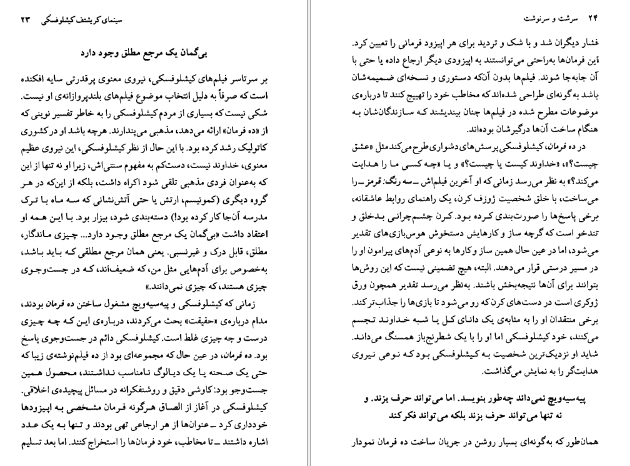 سینمای کریشتف کیشلوفسکی ۲۳
بی‌گمان یک مرجع مطلق وجود دارد
بر سرتاسر فیلم‌های کیشلوفسکی، نیروی معنوی پرقدرتی سایه افکنده
است که صرفاً به دلیل انتخاب موضوع فیلم‌های بلندپروازانه‌ی او نیست.
شکی نیست که بسیاری از مردم کیشلوفسکی را به خاطر تفسیر نوینی که
از «ده فرمان» ارائه می‌دهد، مذهبی می‌پندارند. هرچه باشد او در کشوری
کاتولیک رشد کرده بود. با این حال از نظر کیشلوفسکی، این نیروی عظیم
معنوی، خداوند نیست، دست‌کم به مفهوم سنتی‌اش، زیرا او نه تنها از این
که به‌عنوان فردی مذهبی تلقی شود اکراه داشت، بلکه از این‌که در هر
گروه دیگری (کمونیسم، ارتش یا حتی آتش‌نشانی که سه ماه با ترک
مدرسه آن‌جا کار کرده بود!) دسته‌بندی شود، بیزار بود. با این همه او
اعتقاد داشت «بی‌گمان یک مرجع مطلق وجود دارد... چیزی ماندگار،
مطلق، قابل درک و غیرنسبی. یعنی همان مرجع مطلقی که باید باشد،
به‌خصوص برای آدم‌هایی مثل من، که ضعیف‌اند، که در جست‌وجوی
چیزی هستند، که چیزی نمی‌دانند.»
زمانی که کیشلوفسکی و پیه‌سیه‌ویچ مشغول ساختن ده فرمان بودند،
مدام درباره‌ی «حقیقت» بحث می‌کردند، درباره‌ی این که چه چیزی
درست و چه چیزی غلط است. کیشلوفسکی دائم در جست‌وجوی پاسخ
بود. ده فرمان، در عین حال که مجموعه‌ای بود از ده فیلم‌نوشته‌ی زیبا که
حتی یک صحنه یا یک دیالوگ نامناسب نداشتند، محصول همین
جست‌وجو بود: کاوشی دقیق و روشنفکرانه در مسائل پیچیده‌ی اخلاقی.
کیشلوفسکی در آغاز از الصاق هرگونه فرمان مشخصی به اپیزودها
خودداری کرد ـ عنوان‌ها از هر ارجاعی تهی بودند و تنها به یک عدد
اشاره داشتند ـ تا مخاطب، خود فرمان‌ها را استخراج کنند. اما بعد تسلیم
۲۴ سرشت و سرنوشت
فشار دیگران شد و با شک و تردید برای هر اپیزود فرمانی را تعیین کرد.
این فرمان‌ها به‌راحتی می‌توانستند به اپیزودی دیگر ارجاع داده یا حتی با
آن جابه‌جا شوند. فیلم‌ها بدون آن‌که دستوری و نسخه‌ای ضمیمه‌شان
باشد به‌گونه‌ای طراحی شده‌اند که مخاطب خود را تهییج کنند تا درباره‌ی
موضوعات مطرح شده در فیلم‌ها چنان بیندیشند که سازندگان‌شان به
هنگام ساخت آن‌ها درگیرشان بوده‌اند.
در ده فرمان، کیشلوفسکی پرسش‌های دشواری طرح می‌کند مثل «عشق
چیست؟»، «خداوند کیست یا چیست؟» و یا «چه کسی ما را هدایت
می‌کند؟» به نظر می‌رسد زمانی که او آخرین فیلم‌اش ـ سه رنگ: قرمز ـ را
می‌ساخت، با خلق شخصیت ژوزف کرن، یک راهنمای روابط عاشقانه،
برخی پاسخ‌ها را صورت‌بندی کرده بود. کرن چشم‌چرانی بدخلق و
تندخو است که گرچه ساز و کارهایش دستخوش هوس‌بازی‌های تقدیر
می‌شود، اما در عین حال همین ساز و کارها به نوعی آدم‌های پیرامون او را
در مسیر درستی قرار می‌دهند. البته، هیچ تضمینی نیست که این روش‌ها
بتوانند برای آن‌ها نتیجه‌بخش باشند. به‌نظر می‌رسد تقدیر همچون ورق
ژوکری است در دست‌های کرن که رو می‌شود تا بازی‌ها را جذاب‌تر کند.
برخی منتقدان او را به مثابه‌ی یک دانای کل یا شبه خداوند تجسم
می‌کنند، خود کیشلوفسکی اما او را با یک شطرنج‌باز همسنگ می‌داند.
شاید او نزدیک‌ترین شخصیت به کیشلوفسکی بود که نوعی نیروی
هدایت‌گر را به نمایش می‌گذاشت.
پیه‌سیه‌ویچ نمی‌داند چه‌طور بنویسد. اما می‌تواند حرف بزند. و
نه تنها می‌تواند حرف بزند بلکه می‌تواند فکر کند
همان‌طور که به‌گونه‌ای بسیار روشن در جریان ساخت ده فرمان نمودار